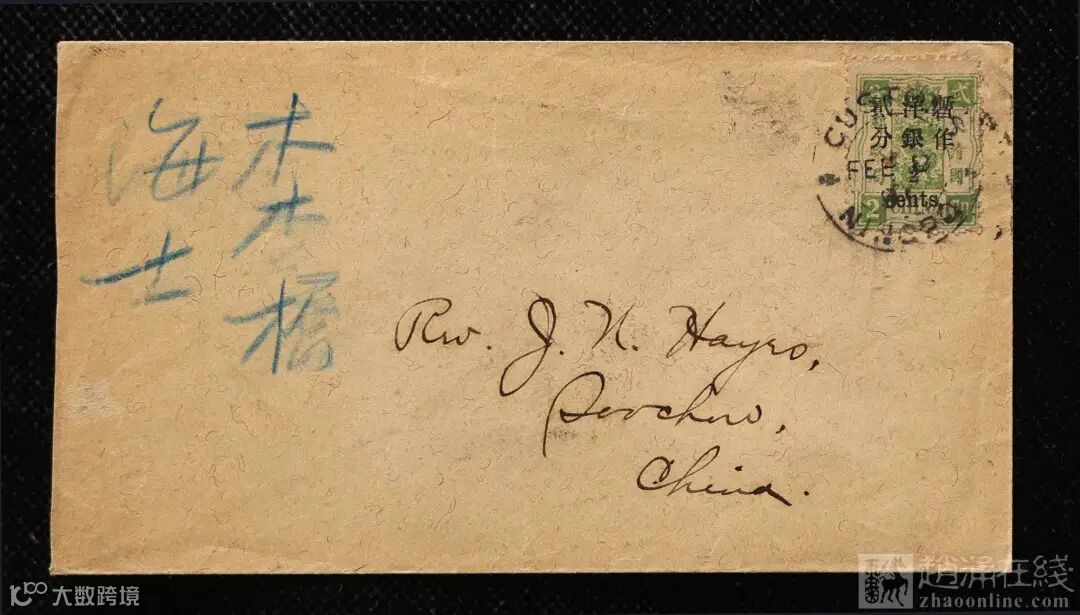 木橋
海士
暫作
洋銀
貳分
cents.
CUSTOMS
FEB
NINGPO
2
Rev. J. N. Hayes,
Soochow,
China.
大数跨境
趙涌在綫
zhaoonline.com